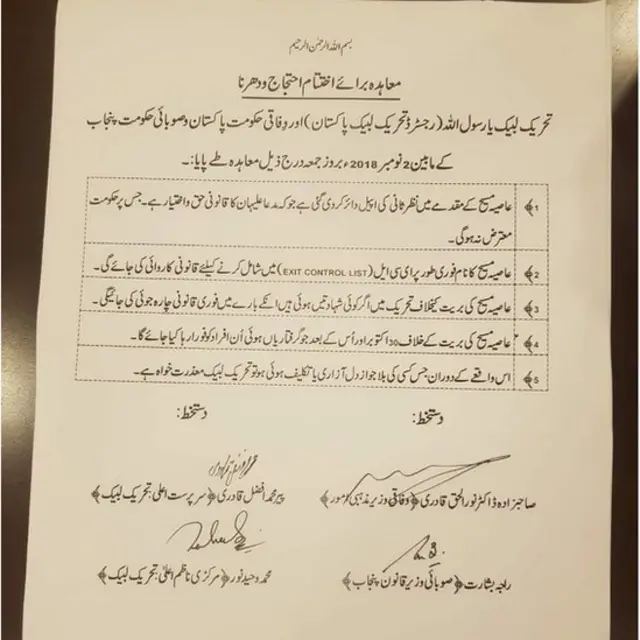 بسم اللہ الرحمٰن الرحیم
معاہدہ برائے اختتام احتجاج و دھرنا
تحریک لبیک یا رسول اللہ (رجسٹرڈ تحریک لبیک پاکستان) اور وفاقی حکومت پاکستان و صوبائی حکومت پنجاب
کے مابین 2 نومبر 2018ء بروز جمعہ درج ذیل معاہدہ طے پایا:۔
1﴾ عاصیہ مسیح کے مقدمے میں نظر ثانی کی اپیل دائر کردی گئی ہے جو کہ مدعا علیہان کا قانونی حق و اختیار ہے۔ جس پر حکومت
معترض نہ ہوگی۔
2﴾ عاصیہ مسیح کا نام فوری طور پر ای سی ایل (EXIT CONTROL LIST) میں شامل کرنے کیلئے قانونی کاروائی کی جائے گی۔
3﴾ عاصیہ مسیح کی بریت کیخلاف تحریک میں اگر کوئی شہادتیں ہوئی ہیں انکے بارے میں فوری قانونی چارہ جوئی کی جائیگی۔
4﴾ عاصیہ مسیح کی بریت کے خلاف 30 اکتوبر اور اُس کے بعد جو گرفتاریاں ہوئی اُن افراد کو فوراً رہا کیا جائے گا۔
5﴾ اس واقعے کے دوران جس کسی کی بلا جواز دل آزاری یا تکلیف ہوئی ہو تو تحریک لبیک معذرت خواہ ہے۔
دستخط: دستخط:
صاحبزادہ ڈاکٹر نورالحق قادری ﴿وفاقی وزیر مذہبی امور﴾ پیر محمد افضل قادری ﴿سرپرست اعلیٰ تحریک لبیک﴾
راجہ بشارت ﴿صوبائی وزیر قانون پنجاب﴾ محمد وحید نور ﴿مرکزی ناظم اعلیٰ تحریک لبیک﴾